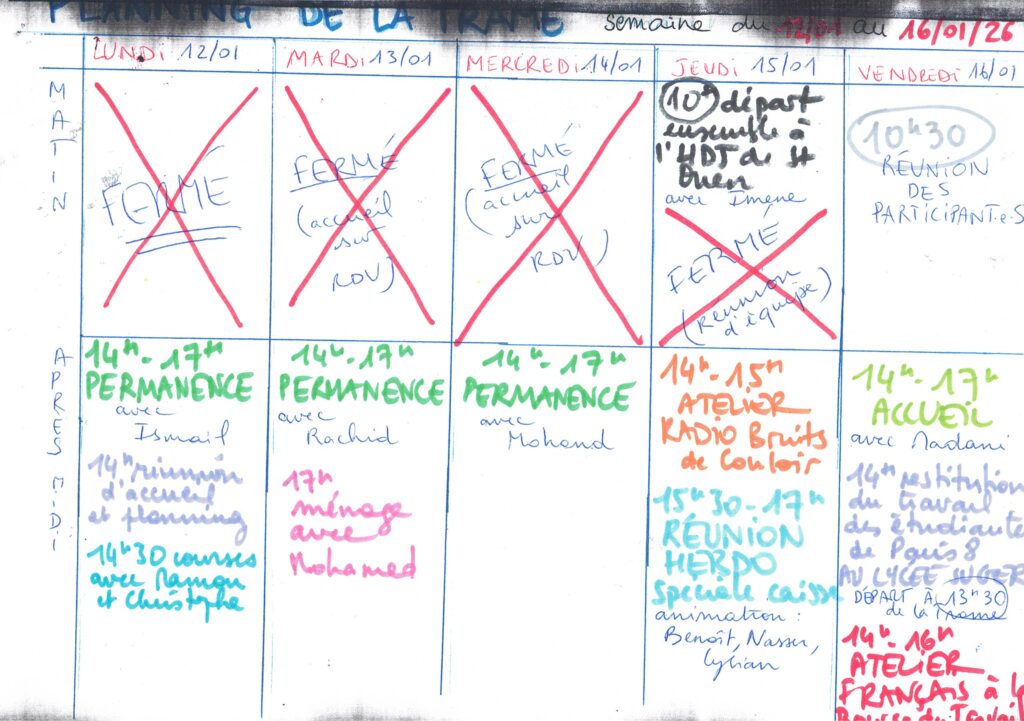 PLANNING DE LA TRAME semaine du 12/01 au 16/01/26
LUNDI 12/01
MARDI 13/01
MERCREDI 14/01
JEUDI 15/01
VENDREDI 16/01
MATIN
FERMÉ
FERMÉ
(accueil
sur
RDV)
FERMÉ
(accueil
sur
RDV)
10h départ
ensemble à
l'HDT de St
Ouen
avec Imène
FERMÉ
(Réunion
d'équipe)
10h30
RÉUNION
DES
PARTICIPANT·e·S
APRÈS MIDI
14h-17h
PERMANENCE
avec
Ismail
14h réunion
d'accueil
et planning
14h30 courses
avec Ramon
et Christophe
14h-17h
PERMANENCE
avec
Rachid
17h
ménage
avec
Mohamed
14h-17h
PERMANENCE
avec
Mohand
14h-15h
ATELIER
RADIO Bruits
de Couloir
15h30-17h
RÉUNION
HEBDO
Spéciale caisse
animation:
Benoît, Nasser,
Lylian
14h-17h
ACCUEIL
avec Madani
14h restitution
du travail
des étudiantes
de Paris 8
AU LYCEE SUGER
DÉPART À 13h30
de la Trame
14h-16h
ATELIER
FRANÇAIS à la
Bourse du Travail